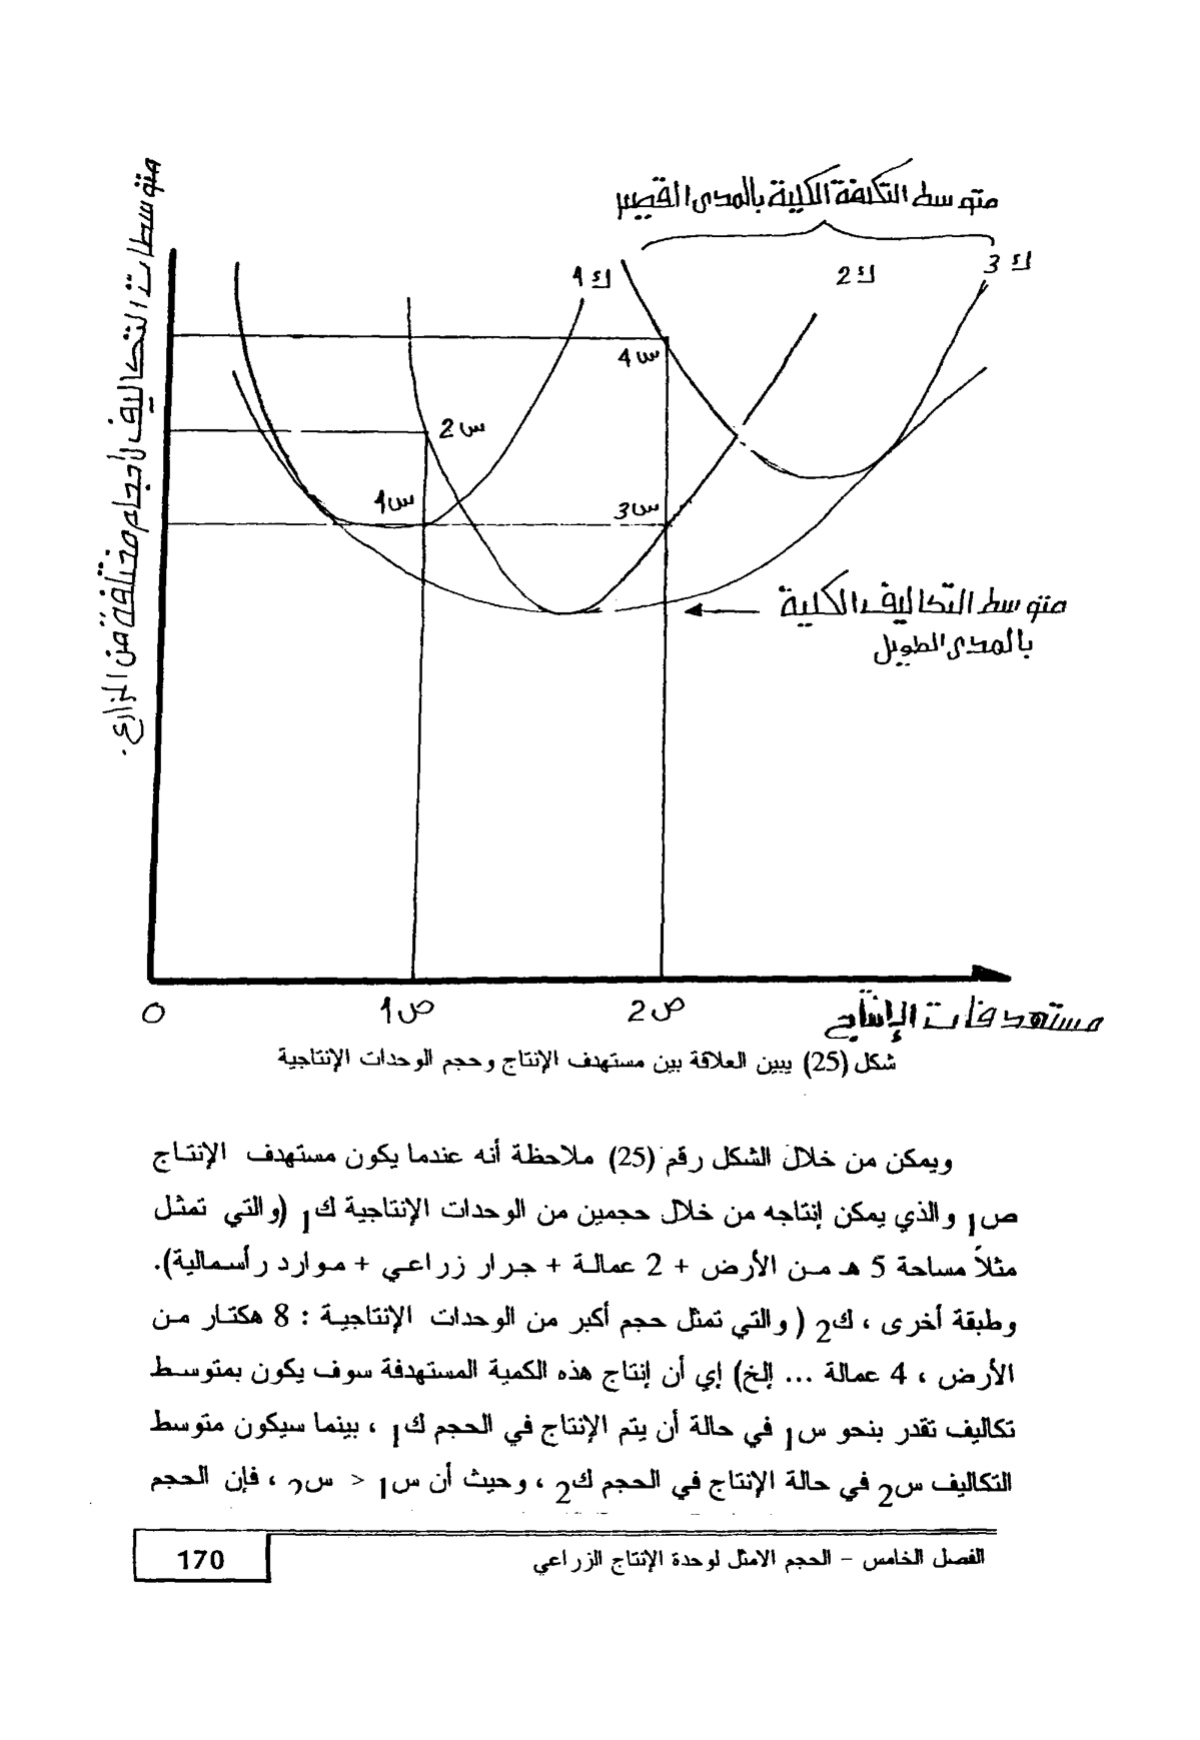 متوسط التكلفة الكلية بالمدى القصير
ك1
ك2
ك3
متوسطات التكاليف لأحجام مختلفة من المزارع.
س4
س2
س1
س3
متوسط التكاليف الكلية
بالمدى الطويل
0
ص1
ص2
مستهدفات الإنتاج
شكل (25) يبين العلاقة بين مستهدف الإنتاج وحجم الوحدات الإنتاجية
ويمكن من خلال الشكل رقم (25) ملاحظة أنه عندما يكون مستهدف الإنتاج
ص1 والذي يمكن إنتاجه من خلال حجمين من الوحدات الإنتاجية ك1 (والتي تمثل
مثلاً مساحة 5 هـ من الأرض + 2 عمالة + جرار زراعي + موارد رأسمالية).
وطبقة أخرى ، ك2 ( والتي تمثل حجم أكبر من الوحدات الإنتاجية : 8 هكتار من
الأرض ، 4 عمالة ... إلخ) إي أن إنتاج هذه الكمية المستهدفة سوف يكون بمتوسط
تكاليف تقدر بنحو س1 في حالة أن يتم الإنتاج في الحجم ك1 ، بينما سيكون متوسط
التكاليف س2 في حالة الإنتاج في الحجم ك2 ، وحيث أن س1 < س2 ، فإن الحجم
الفصل الخامس – الحجم الامثل لوحدة الإنتاج الزراعي
170